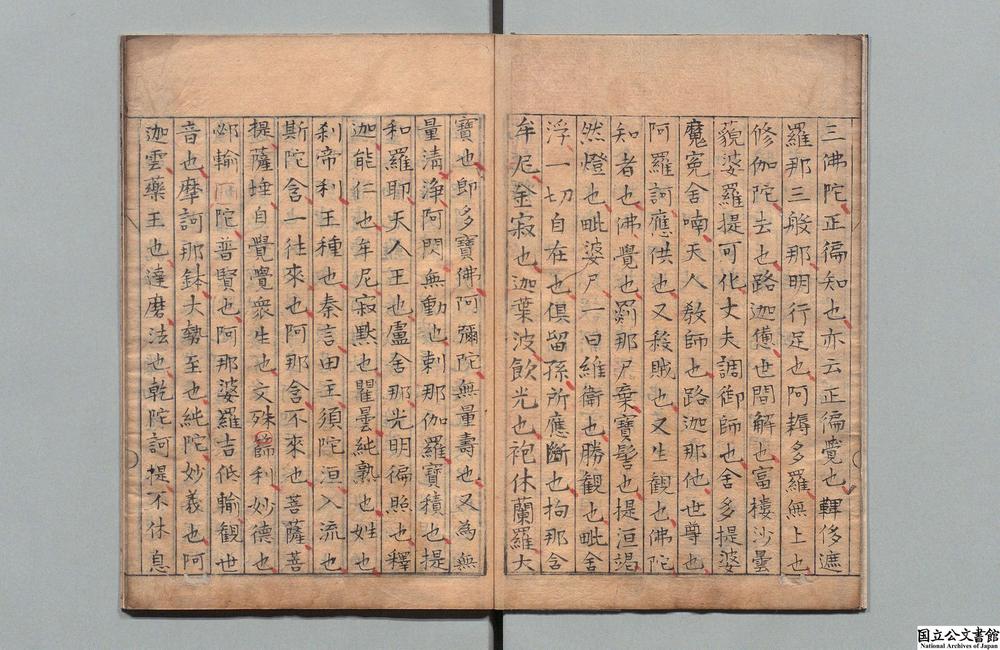 三佛陀正徧知也亦云正徧覺也鞞侈遮
羅那三般那明行足也阿耨多羅無上也
修伽陀去也路迦憊世間解也富樓沙曇
藐婆羅提可化丈夫調御師也舍多提婆
魔㝹舍喃天人敎師也路迦那他世尊也
阿羅訶應供也又殺賊也又生觀也佛陀
知者也佛覺也罽那尸棄寶髻也提洹竭
然燈也毗婆尸一曰維衛也勝觀也毗舍
浮一切自在也俱留孫所應斷也拘那含
牟尼金寂也迦葉波飮光也袍休蘭羅大
寶也卽多寶佛阿彌陀無量壽也又為無
量淸淨阿閦無動也剌那伽羅寶積也提
和羅耶天人王也盧舍那光明徧照也釋
迦能仁也牟尼寂默也瞿曇純熟也姓也
刹帝利王種也秦言田主須陀洹入流也
斯陀含一徃來也阿那含不來也菩薩菩
提薩埵自覺覺衆生也文殊師利妙德也
邲輸陀普賢也阿那婆羅吉低輸觀世
音也摩訶那鉢大勢至也純陀妙義也阿
迦雲藥王也達磨法也乾陀訶提不休息
国立公文書館
National Archives of Japan